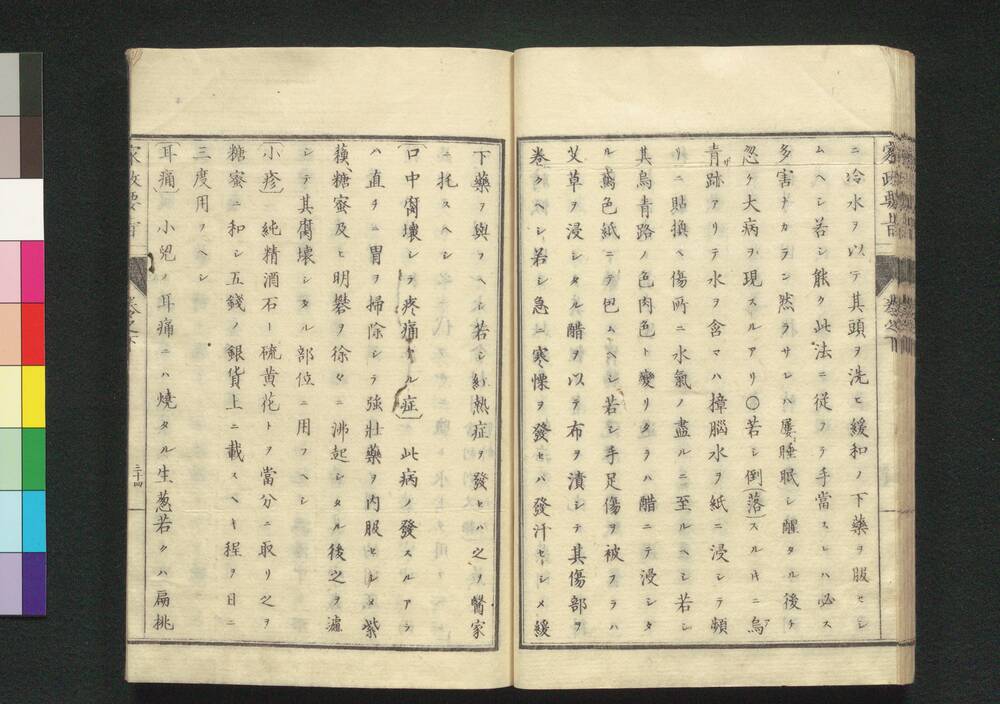 家政要旨 卷之下
ニ冷水ヲ以テ其頭ヲ洗ヒ緩和ノ下藥ヲ服セシ
ムヘシ若シ能ク此法ニ從フテ手當スレハ必ス
多害ナカラン然ラサレハ屢睡眠シ醒タル後チ
忽ケ大病ヲ現スルアリ〇若シ倒落スルキニ烏
青跡アリテ水ヲ含マハ樟腦水ヲ紙ニ浸シテ頻
リニ貼換ヘ傷所ニ水氣ノ盡ルニ至ルヘシ若シ
其烏青路ノ色肉色ト變リタラハ醋ニテ浸シタ
ル鳶色紙ニテ包ムヘシ若シ手足傷ヲ被フラハ
艾草ヲ浸シタル醋ヲ以テ布ヲ漬シテ其傷部ヲ
卷クヘシ若シ急ニ寒慄ヲ發セハ發汗セシメ緩
下藥ヲ與フヘシ若シ紅熱症ヲ發セハ之ノ醫家
ニ托スヘシ
口中腐壞シテ疼痛スル症 此病ノ發スルアラ
ハ直チニ胃ヲ掃除シテ強壯藥ヲ内服セシメ紫
蘓糖蜜及ヒ明礬ヲ徐々ニ沸起シタル後之ヲ濾
シテ其腐壞シタル部位ニ用フヘシ
小疹 純精酒石ト硫黄花トヲ當分ニ取リ之ヲ
糖蜜ニ和シ五錢ノ銀貨上ニ載スヘキ程ヲ日ニ
三度用フヘシ
耳痛 小兒ノ耳痛ニハ燒タル生葱若クハ扁桃
家政要旨 卷之下 三十四